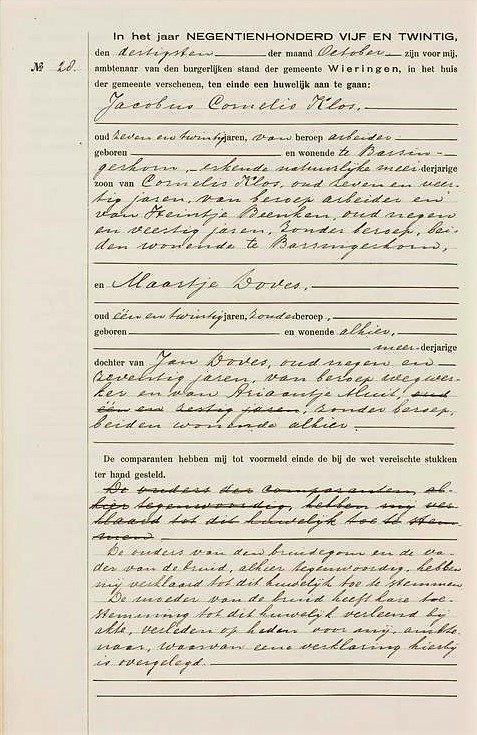 In het jaar NEGENTIENHONDERD VIJF EN TWINTIG,
den dertigsten der maand October zijn voor mij,
№ 28. ambtenaar van den burgerlijken stand der gemeente Wieringen, in het huis
der gemeente verschenen, ten einde een huwelijk aan te gaan:
Jacobus Cornelis Klos,
oud zeven en twintig jaren, van beroep arbeider
geboren en wonende te Barsin-
gerhorn, erkende natuurlijke meerderjarige
zoon van Cornelis Klos, oud zeven en veer-
tig jaren, van beroep arbeider en
van Heintje Beenken, oud negen
en veertig jaren, zonder beroep, bei-
den wonende te Barsingerhorn,
en Maartje Doves,
oud één en twintig jaren, zonder beroep,
geboren en wonende alhier,
meerderjarige
dochter van Jan Doves, oud negen en
zeventig jaren, van beroep wegwer-
ker en van Ariaantje Muil, oud
één en zestig jaren, zonder beroep,
beiden wonende alhier.
De comparanten hebben mij tot voormeld einde de bij de wet vereischte stukken
ter hand gesteld.
De ouders der comparanten, al-
hier tegenwoordig, hebben mij ver-
klaard tot dit huwelijk toe te stem-
men
De ouders van den bruidegom en de va-
der van de bruid, alhier tegenwoordig, hebben
mij verklaard tot dit huwelijk toe te stemmen
De moeder van de bruid heeft hare toe-
stemming tot dit huwelijk verleend bij
akte, verleden op heden voor mij, ambte-
naar, waarvan eene verklaring hierbij
is overgelegd.